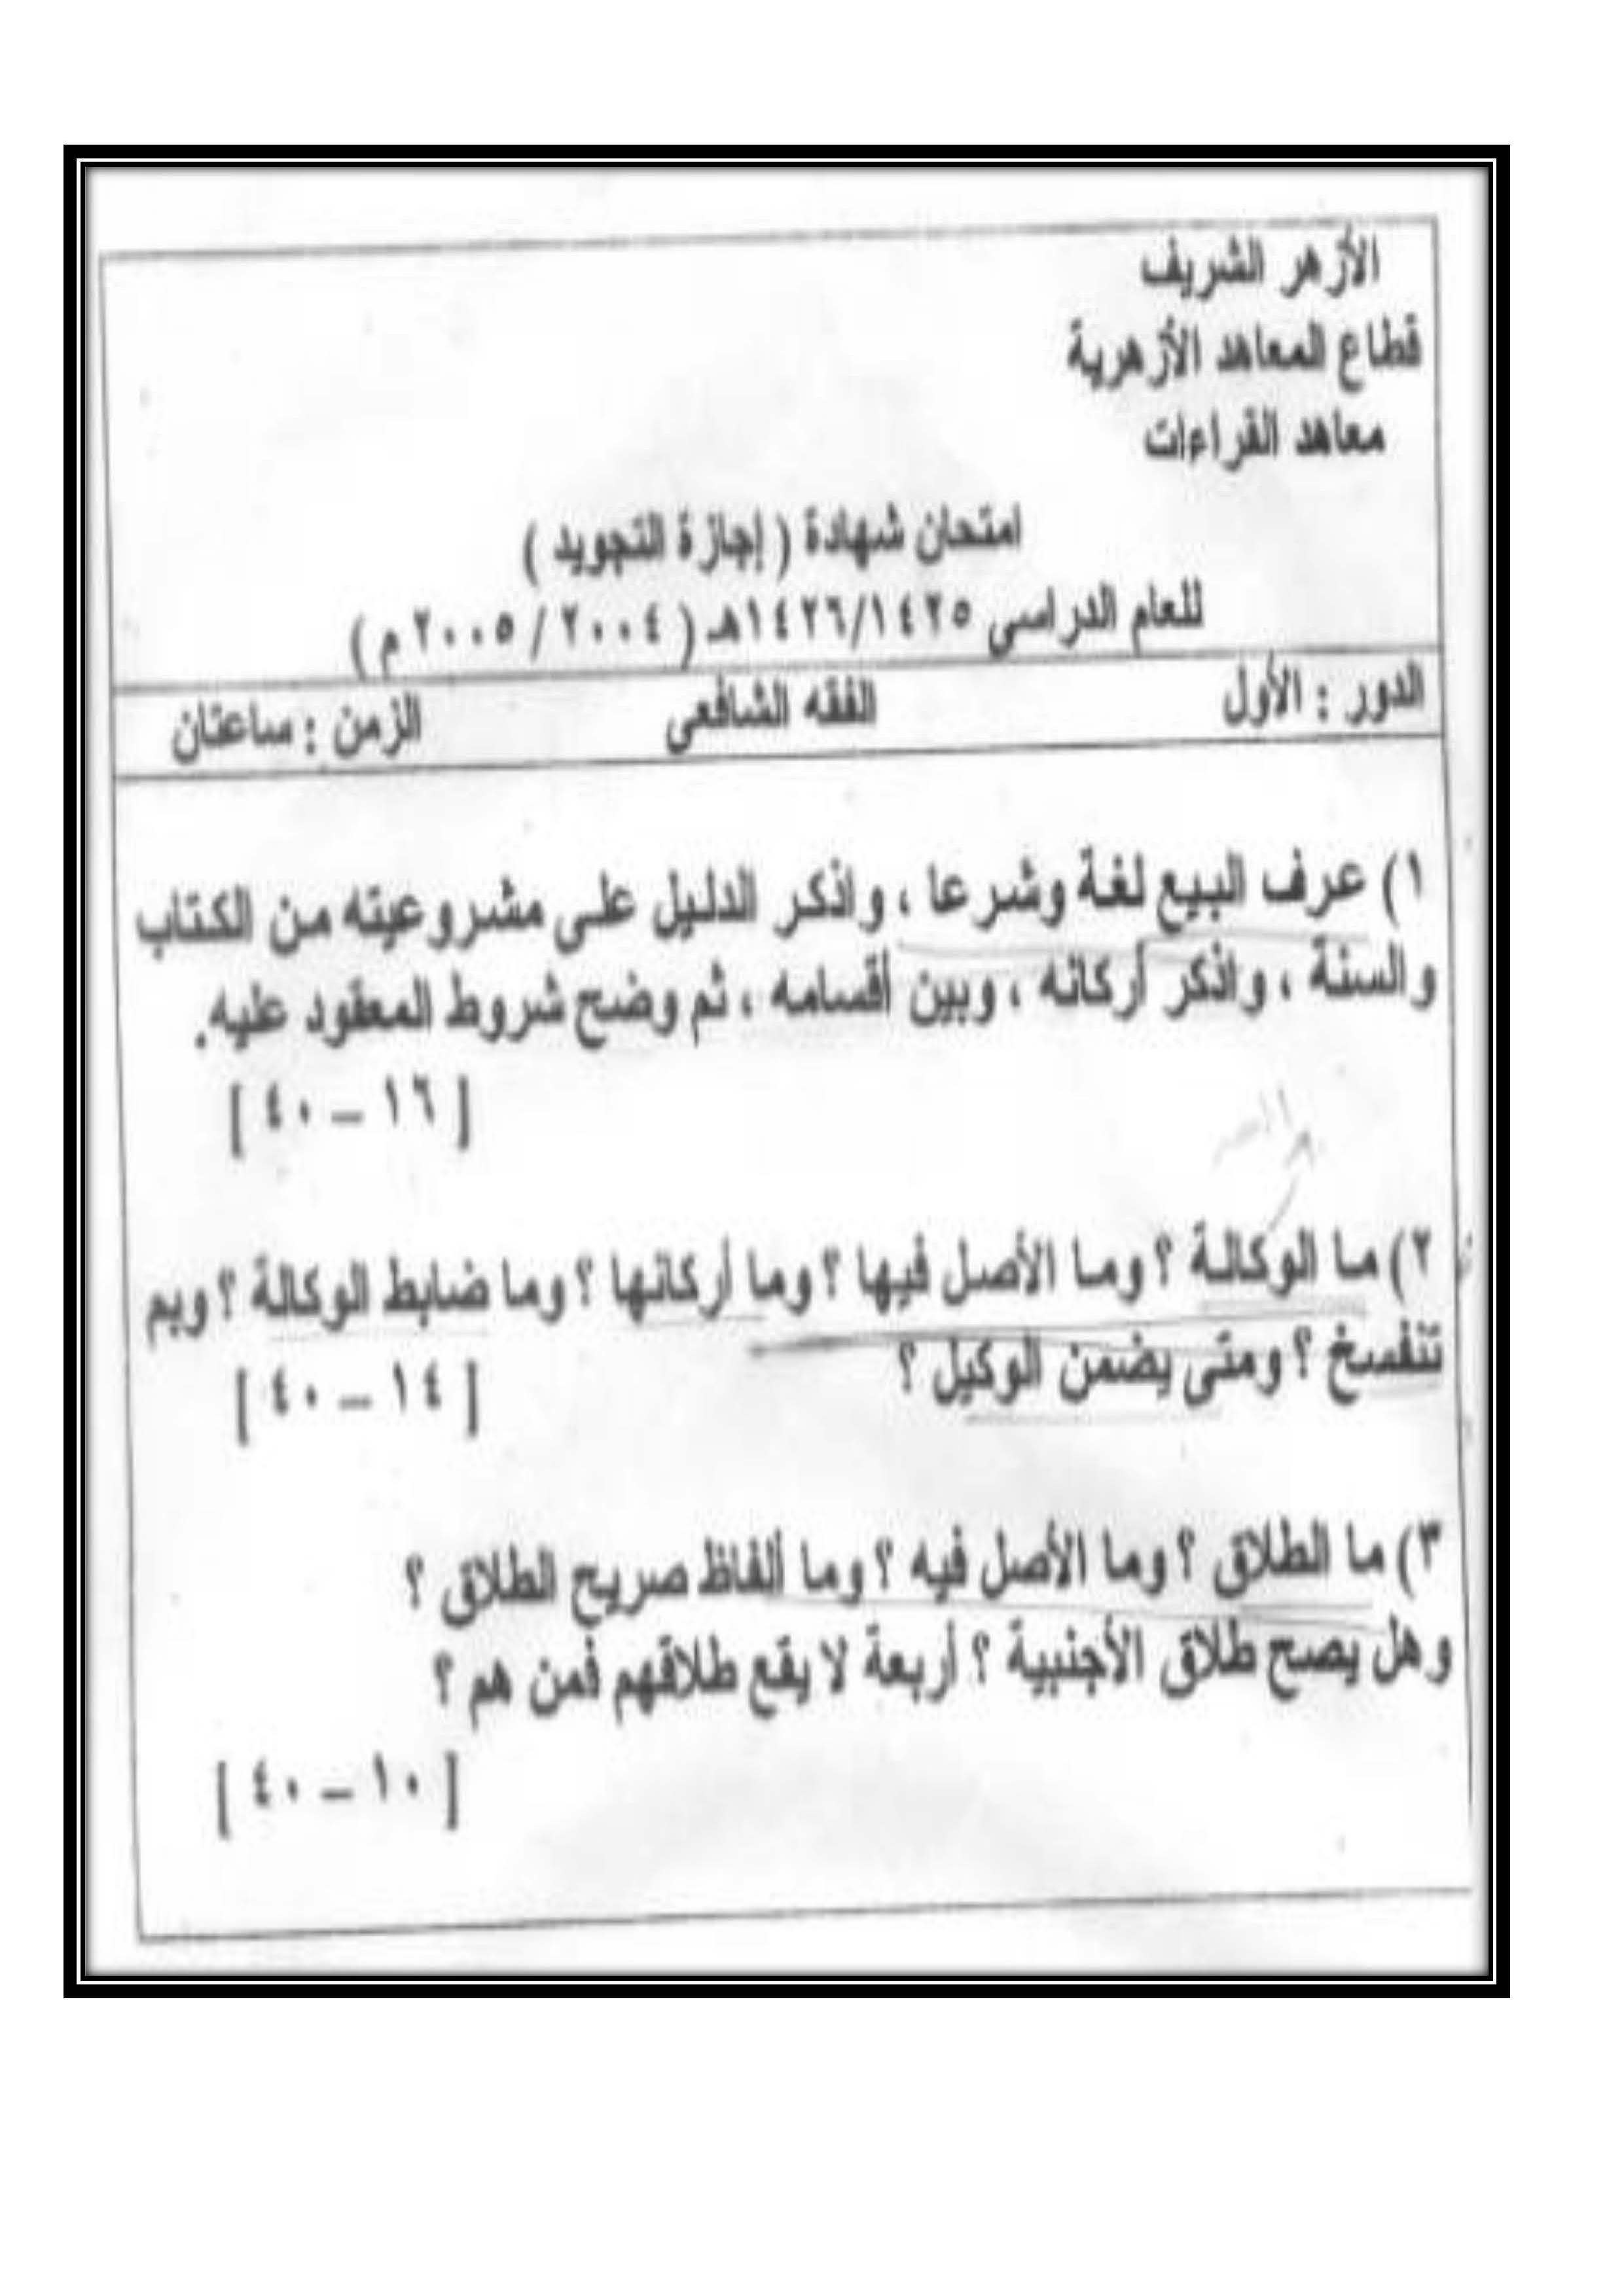 الأزهر الشريف
قطاع المعاهد الأزهرية
معاهد القراءات
امتحان شهادة ( إجازة التجويد )
للعام الدراسى ١٤٢٦/١٤٢٥هـ ( ٢٠٠٤ / ٢٠٠٥ م )
الدور : الأول الفقه الشافعى الزمن : ساعتان
١) عرف البيع لغة وشرعا ، واذكر الدليل على مشروعيته من الكتاب
والسنة ، واذكر أركانه ، وبين أقسامه ، ثم وضح شروط المعقود عليه.
[ ١٦ – ٤٠ ]
٢) ما الوكالة ؟ وما الأصل فيها ؟ وما أركانها ؟ وما ضابط الوكالة ؟ وبم
تنفسخ ؟ ومتى يضمن الوكيل ؟ [ ١٤ – ٤٠ ]
٣) ما الطلاق ؟ وما الأصل فيه ؟ وما ألفاظ صريح الطلاق ؟
وهل يصح طلاق الأجنبية ؟ أربعة لا يقع طلاقهم فمن هم ؟
[ ١٠ – ٤٠ ]